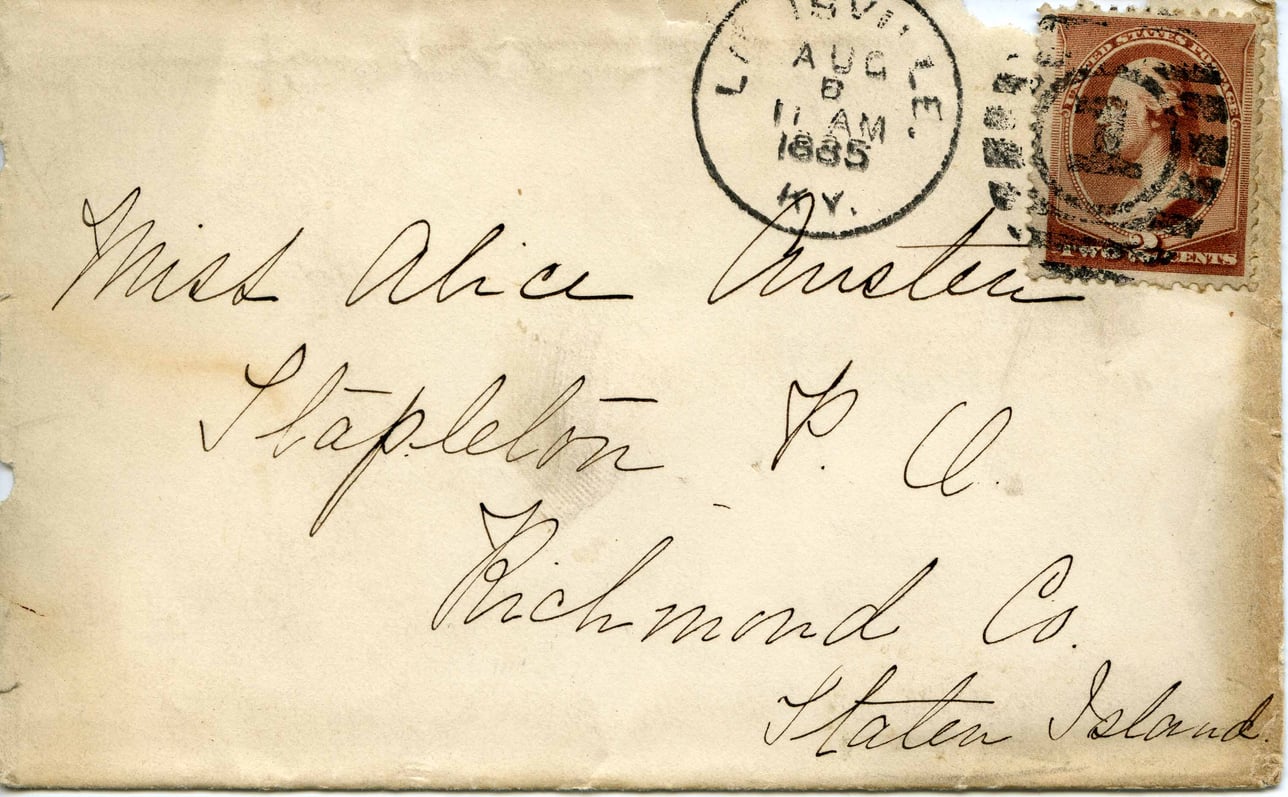 LOUISVILLE,
AUG
11 AM
1885
KY.
UNITED STATES POSTAGE
2
TWO CENTS
Miss Alice Austen
Stapleton P. O.
Richmond Co.
Staten Island.